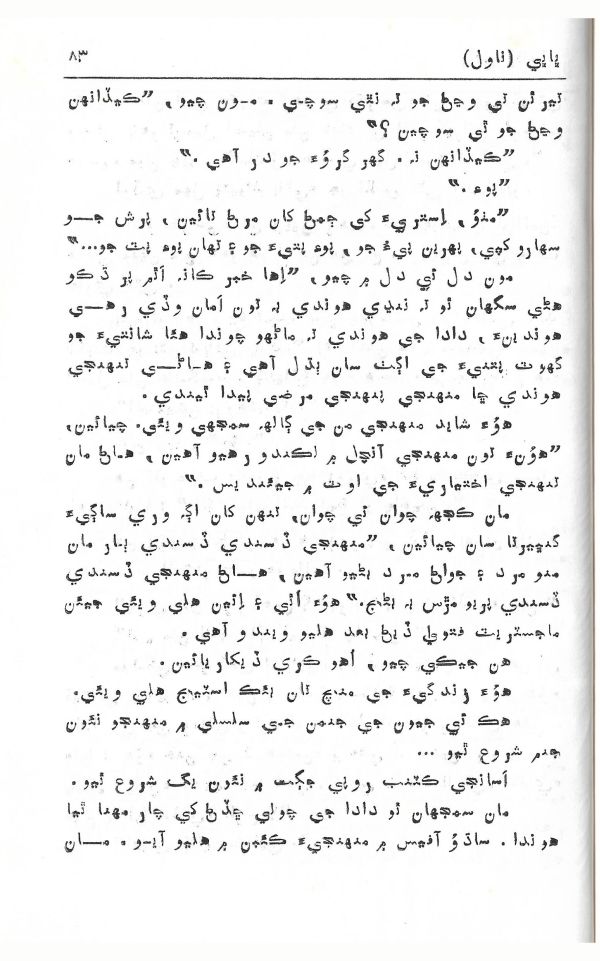 پاپي (ناول) ۸۳
تيرٿن تي وڃڻ جو ته نٿي سوچي. مون چيو، ”ڪيڏانهن
وڃڻ جو ٿي سوچين؟“
”ڪيڏانهن نه. گهر گروءَ جو در آهي.“
”پوءِ.“
”منوُ، اِستريءَ کي ڄمڻ کان مرڻ تائين، پرش جو
سهارو کپي، پهرين پيءُ جو، پوءِ پتيءَ جو ۽ تنهان پوءِ پٽ جو...“
مون دل ئي دل ۾ چيو، ”اِها خبر کانه اَٿم پر ڏک
هڻي سگهان ٿو ته ننڍي هوندي به تون اَمان وڏي رهي
هوندينءَ، دادا جي هوندي ته ماڻهو چوندا هئا شانتيءَ جو
گهوٽ پتنيءَ جي اڳٽ سان ٻڌل آهي ۽ هاڻي تنهنجي
هوندي ڇا منهنجي پنهنجي مرضي پيدا ٿيندي.
هوءَ شايد منهنجي من جي ڳالهه سمجهي ويئي. چيائين،
”هوُنءَ تون منهنجي آنچل ۾ لڪندو رهيو آهين، هاڻ مان
تنهنجي اختياريءَ جي اوٽ ۾ جيئنديس.“
مان ڪجهه چوان ئي چوان، تنهن کان اڳ وري ساڳيءَ
گنڀيرتا سان چيائين، ”منهنجي ڏسندي ڏسندي ٻار مان
منو مرد ۽ جوان مرد بڻيو آهين، هاڻ منهنجي ڏسندي
ڏسندي ڀريو مڙس به بڻج.“ هوءَ اُٿي ۽ اِئين هلي ويئي جيئن
ماجستريٽ فتويٰ ڏيڻ بعد هليو ويندو آهي.
هن جيڪي چيو، اُهو ڪري ڏيکاريائين.
هوءَ زندگيءَ جي منچ تان بيٺڪ اسٽيج هلي ويئي.
هڪ ئي جيون جي جنمن جي سلسلي ۾ منهنجو نئون
جنم شروع ٿيو ...
اَسانجي ڪٽنب روپي جڳت ۾ نئون يگ شروع ٿيو.
مان سمجهان ٿو دادا جي چولي ڇڏڻ کي چار مهنا ٿيا
هوندا. ساڌوُ آفيس ۾ منهنجيءَ ڪئبن ۾ هليو آيو. مان